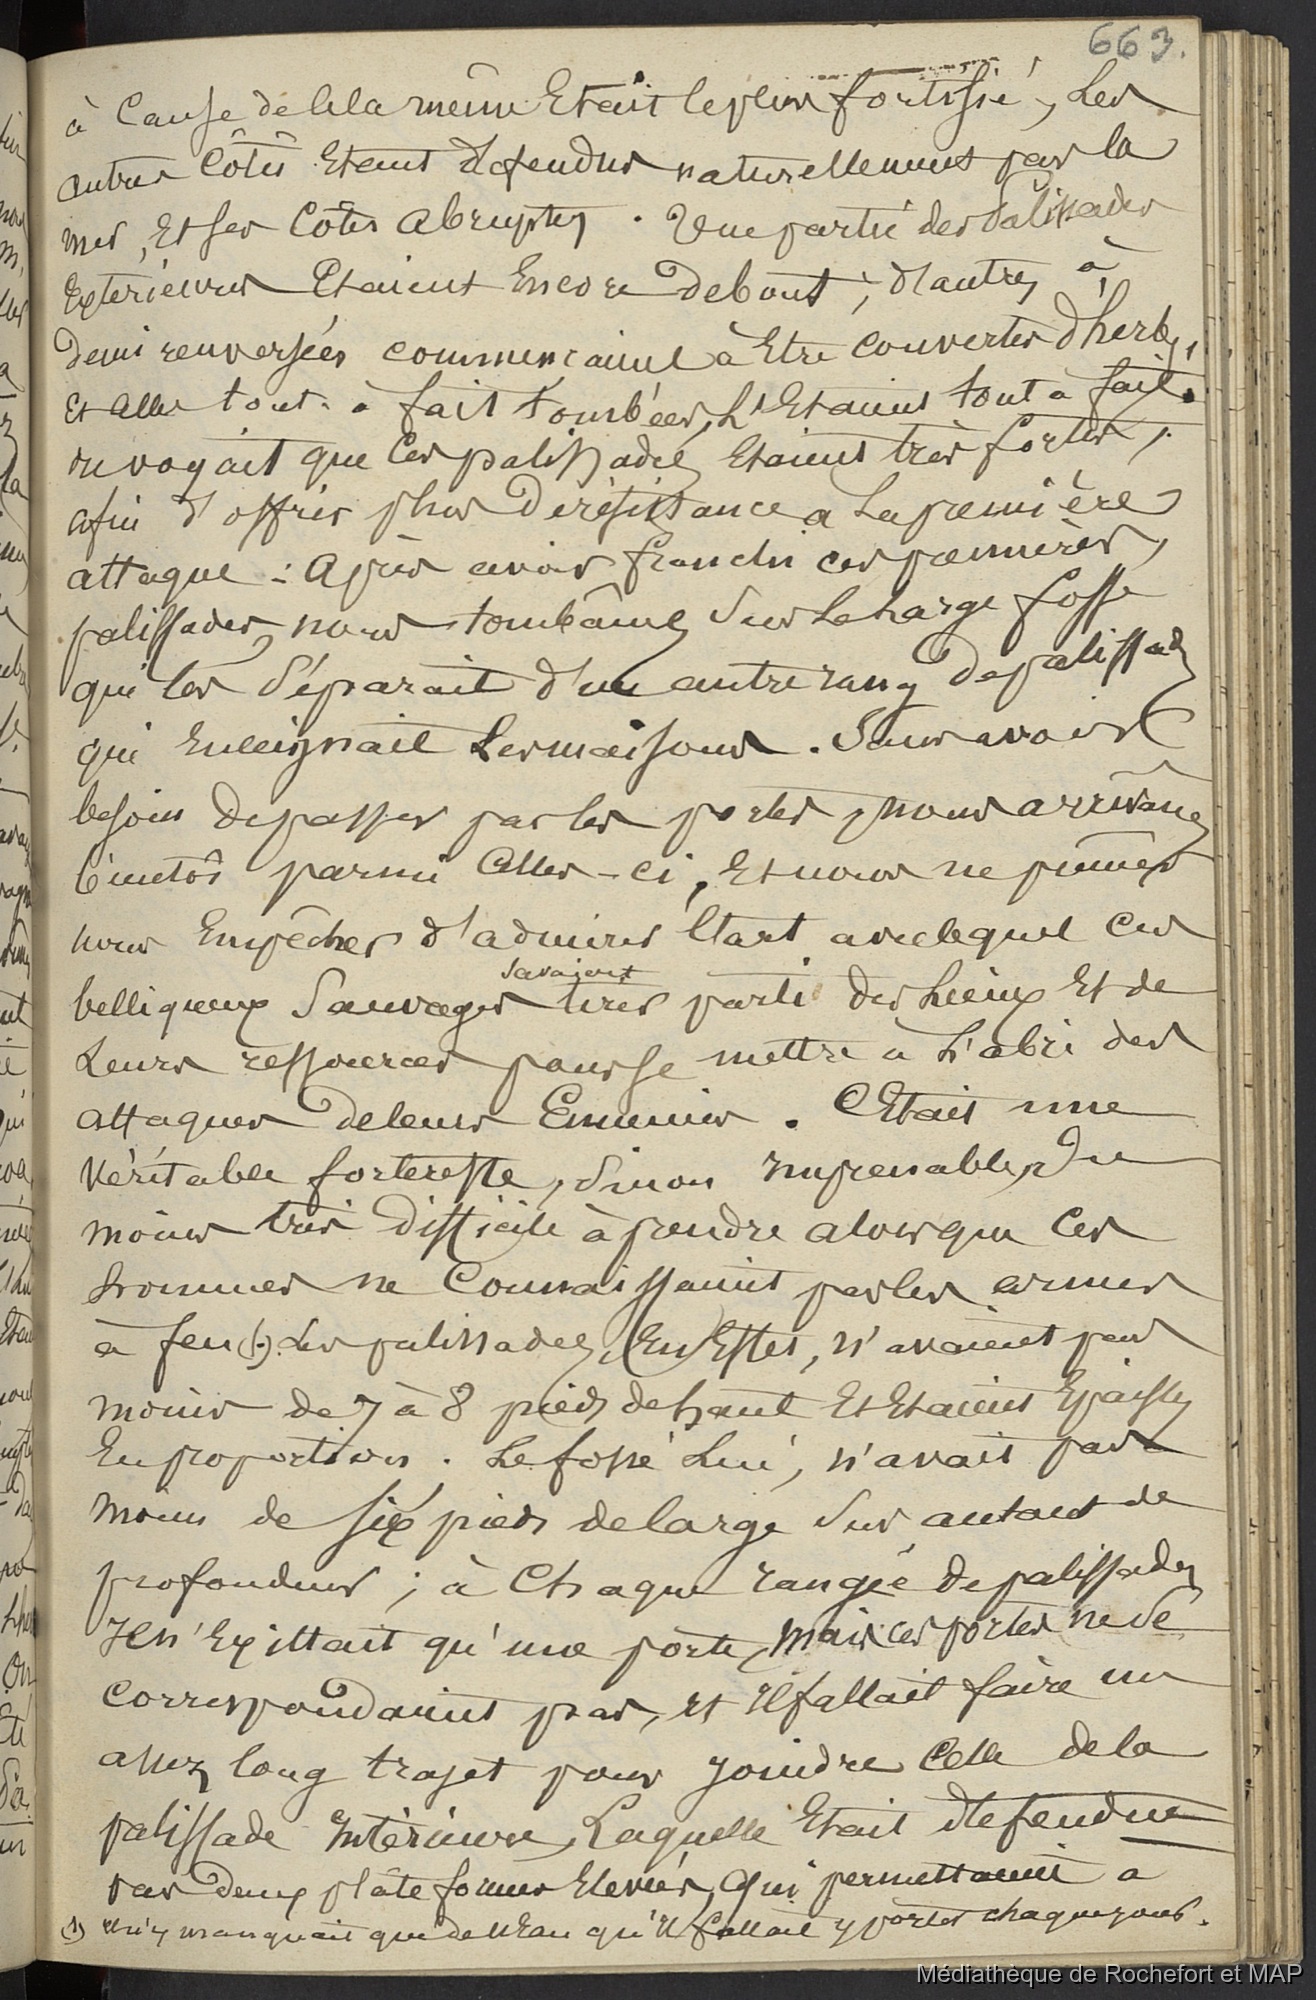 663.
à Cause de Cela même Etait le plus fortifié, Les
autres Côtés Etant defendus naturellement par la
mer, Et ses Côtes abruptes. Une partie des Palissades
Exterieures Etaient Encore debout, d'autres à
demi renversées commencaient à Etre couvertes d'herbes,
Et celles tout-à fait tombées, L'Etaient tout à fait.
on voyait que Ces palissades Etaient très fortes,
afin d'offrir plus de résistance a La première
attaque : Après avoir franchi ces premières
palissades, nous tombâmes Sur Le Large fossé
qui les Séparait d'un autre rang de palissades
qui Enceignait Les maisons. Sans avoir
besoin de passer par les portes, nous arrivâmes
bientôt parmi Celles-ci, Et nous ne pûmes
nous Empêcher d'admirer l'art avec lequel Ces
belliqueux Sauvages savaient tirer parti des Lieux Et de
Leurs ressources pour se mettre à L'abri des
attaques de leurs Ennemis. C'Etait une
véritable forteresse, Sinon imprenable, Du
moins très difficile à prendre alors que Ces
hommes ne Connaissaient pas les armes
à feu (1). Les palissades, En Effet, n'avaient pas
moins de 7 à 8 pieds de haut Et Etaient Epaisses
En proportion. Le fossé Lui, n'avait pas
moins de six pieds de large Sur autant de
profondeur ; à Chaque rangée de palissades
Il n'Existait qu'une porte, Mais ces portes ne se
Correspondaient pas, et Il fallait faire un
assez long trajet pour joindre Celle de la
palissade Intérieure, Laquelle Etait defendue
par deux plate formes Elevées, qui permettaient a
(1) Il n'y manquait que de l'Eau qu'Il fallait y porter chaque jour.
Médiathèque de Rochefort et MAP